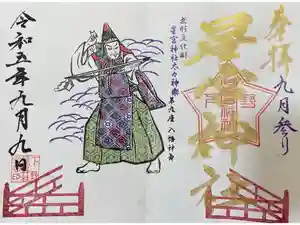 奉拝
九月参り
星宮神社
無形文化財
星宮神社太々神楽
第九座 八幡神舞
令和五年九月九日